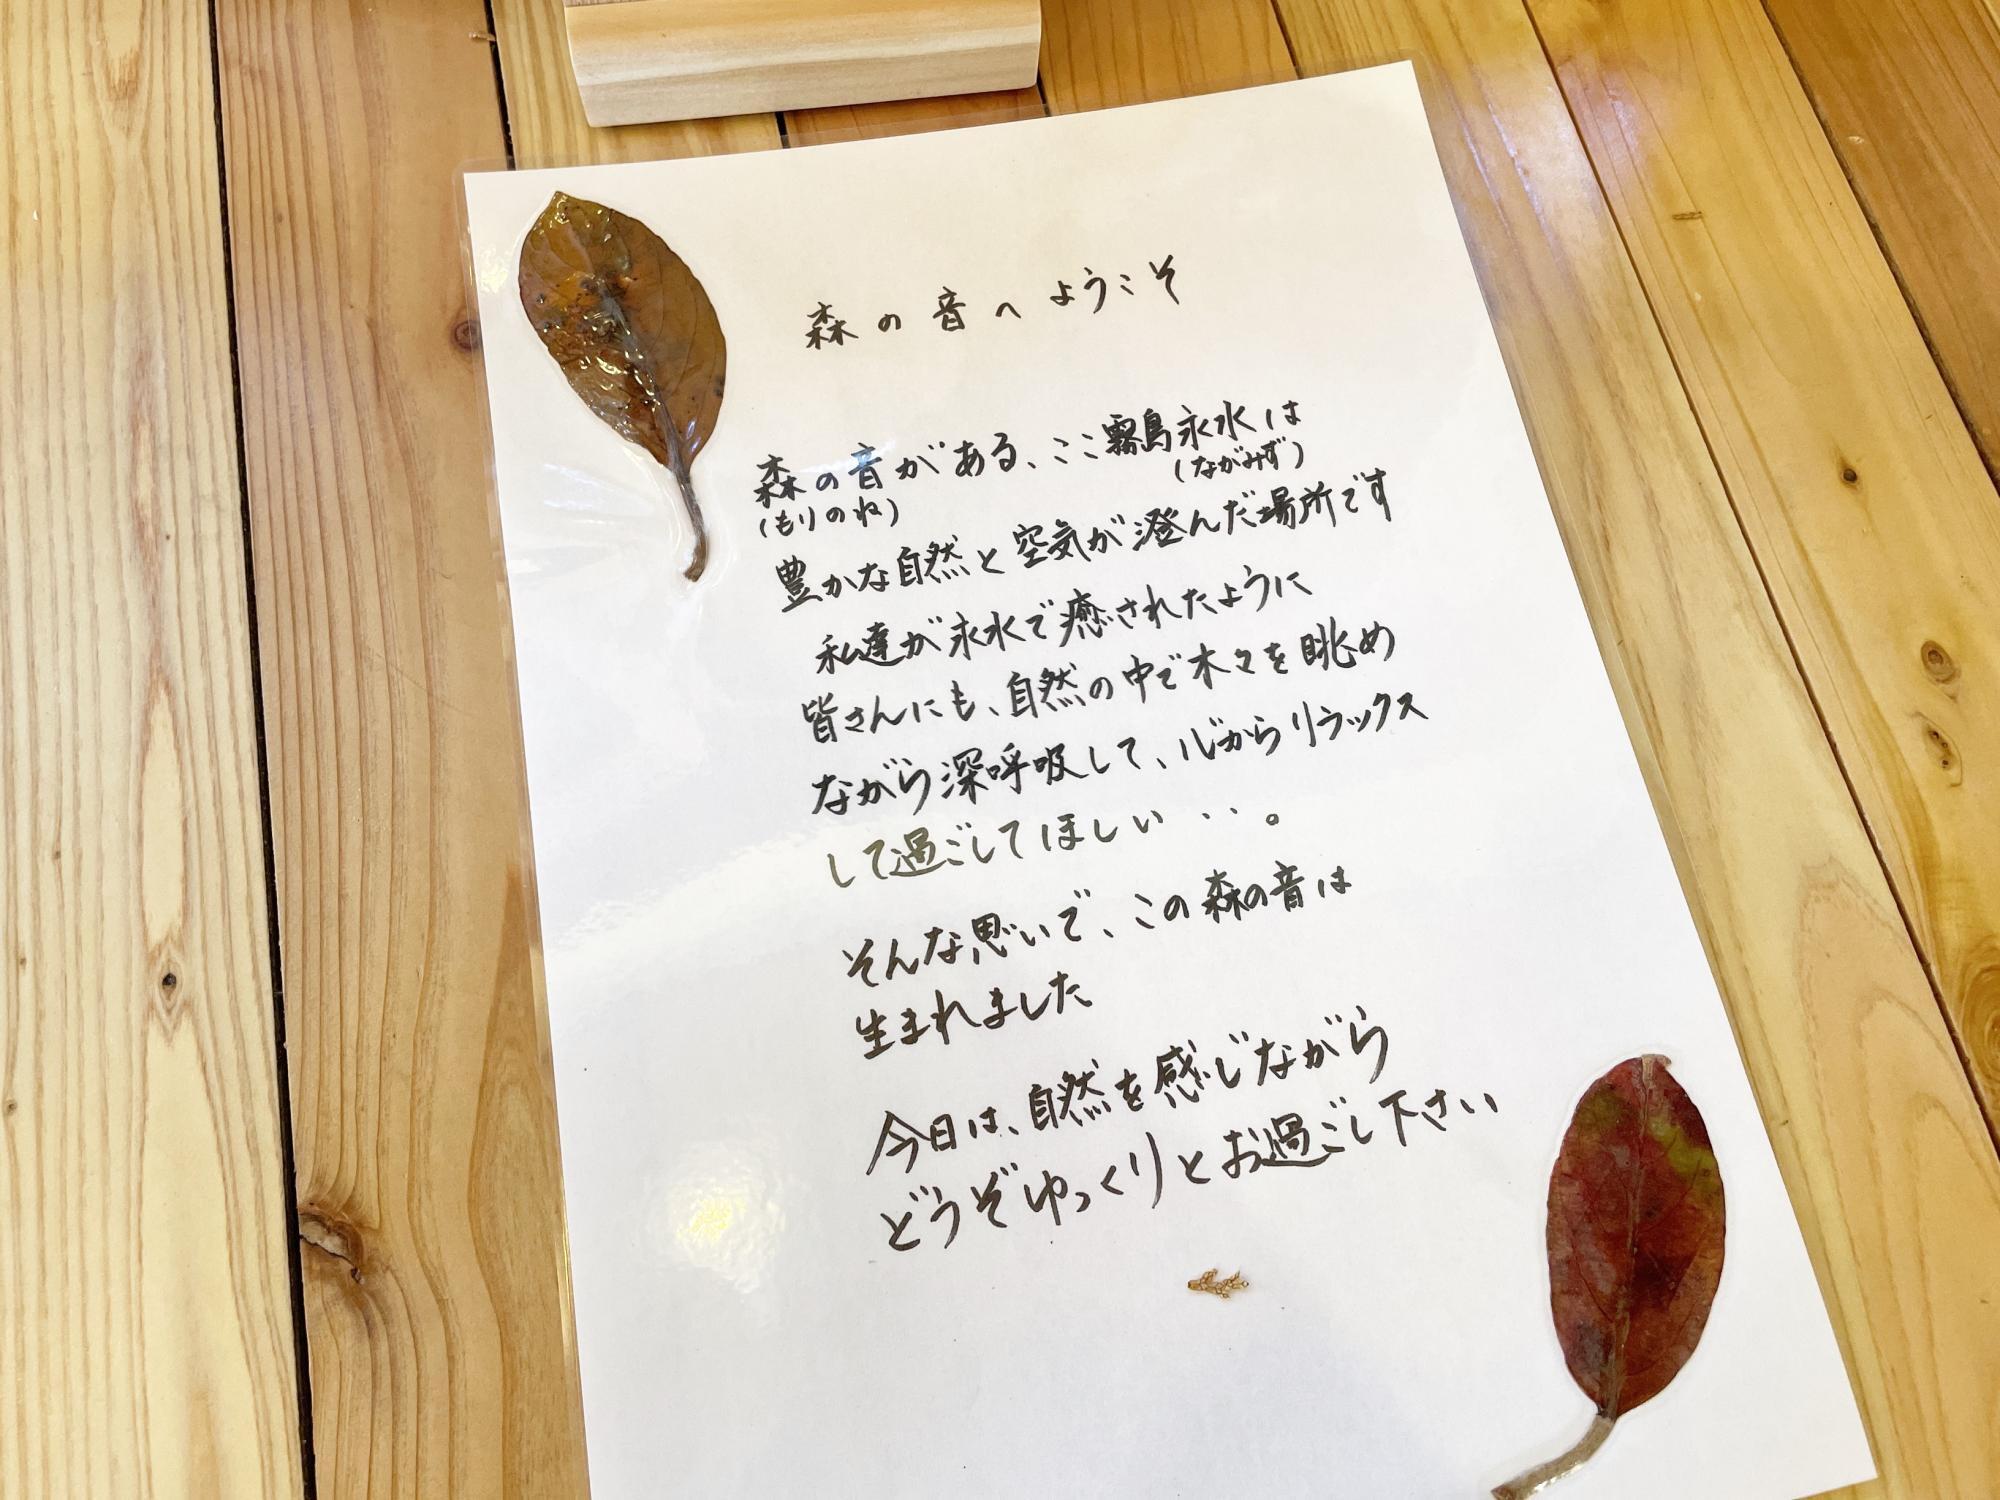 森の音へようこそ
森の音がある、ここ霧島永水は
(もりのね)
(ながみず)
豊かな自然と空気が澄んだ場所です
私達が永水で癒されたように
皆さんにも、自然の中で木々を眺め
ながら深呼吸して、心からリラックス
して過ごしてほしい・・。
そんな思いで、この森の音は
生まれました
今日は、自然を感じながら
どうぞゆっくりとお過ごし下さい